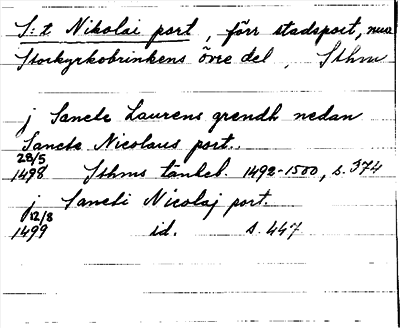 S:t Nikolai port, förr stadsport, nuv.
Storkyrkobrinkens övre del, Sthm
j Sancte Laurens grendh nedan
Sancte Nicolaus port.
28/5
1498 Sthms tänkeb. 1492-1500, s. 374
j Sancti Nicolaj port.
12/8
1499 id. s. 447